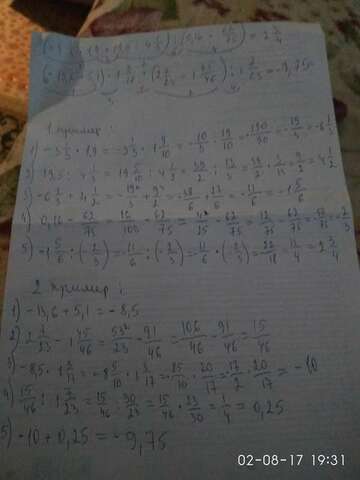 (-3 1/3 · 1,9 + 19,5 : 4 1/3) : (0,16 - 62/75) = 2 3/4
(-13,6 + 5,1) · 1 3/17 + (2 7/23 - 1 45/46) : 1 7/23 = -9,75
1 пример:
1) -3 1/3 · 1,9 = -3 1/3 · 1 9/10 = -10/3 · 19/10 = -190/30 = -19/3 = -6 1/3
2) 19,5 : 4 1/3 = 19 5/10 : 4 1/3 = 39/2 : 13/3 = 39/2 · 3/13 = 9/2 = 4 1/2
3) -6 1/3 + 4 1/2 = -19/3 + 9/2 = -38/6 + 27/6 = -11/6 = -1 5/6
4) 0,16 - 62/75 = 16/100 - 62/75 = 4/25 - 62/75 = 12/75 - 62/75 = -50/75 = -2/3
5) -1 5/6 : (-2/3) = -11/6 : (-2/3) = -11/6 · (-3/2) = 33/12 = 11/4 = 2 3/4
2 пример:
1) -13,6 + 5,1 = -8,5
2) 2 7/23 - 1 45/46 = 53/23 - 91/46 = 106/46 - 91/46 = 15/46
3) -8,5 · 1 3/17 = -8 5/10 · 1 3/17 = -85/10 · 20/17 = -17/2 · 20/17 = -10
4) 15/46 : 1 7/23 = 15/46 : 30/23 = 15/46 · 23/30 = 1/4 = 0,25
5) -10 + 0,25 = -9,75
02-08-17 19:31